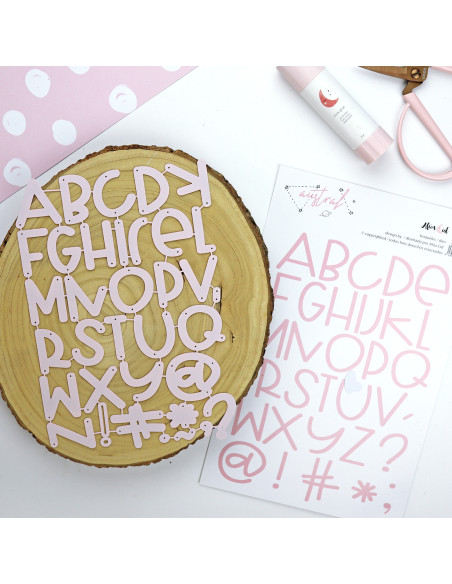 ABCDK
FGHIJeL
MNOPV,
RSTUQ
WXY@
Z!#*;?
austral
ABCDe
FGHIJKL
MNOPQ
RSTUV,
WXYZ?
@!#*;